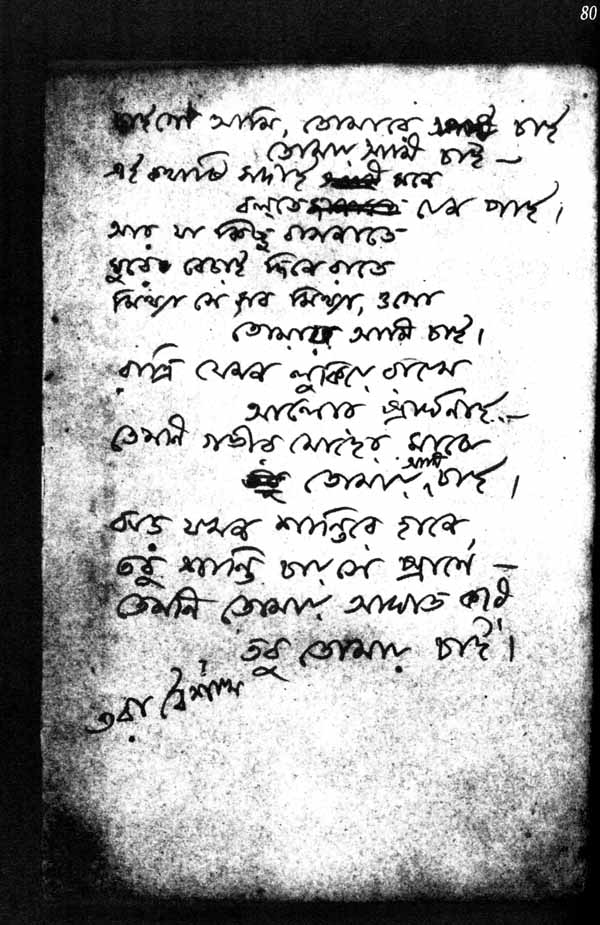 80
চাই গো আমি, তোমারে চাই
তোমায় আমি চাই —
এই কথাটি সদাই মনে
বলতে যেন পাই।
আর যা কিছু বাসনাতে
ঘুরে বেড়াই দিনে রাতে
মিথ্যা সে সব মিথ্যা, ওগো
তোমায় আমি চাই।
রাত্রি যেমন লুকিয়ে রাখে
আলোর প্রার্থনাই —
তেমনি গভীর মোহের মাঝে
তোমায় আমি চাই।
ঝড় যখন শান্তিরে হানে,
তবু শান্তি চায় সে প্রাণে —
তেমনি তোমায় আঘাত করি
তবু তোমায় চাই।
৩রা বৈশাখ